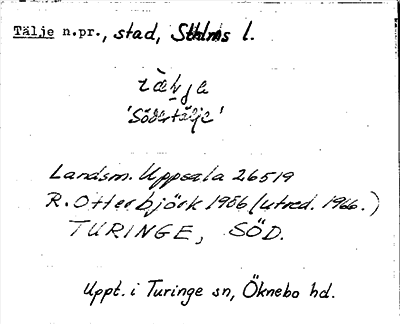 Tälje n.pr., stad, Sthlms l.
'Södertälje'
Landsm. Uppsala 26519
R. Otterbjörk 1956 (utred. 1966.)
TURINGE, SÖD.
Uppt. i Turinge sn, Öknebo hd.